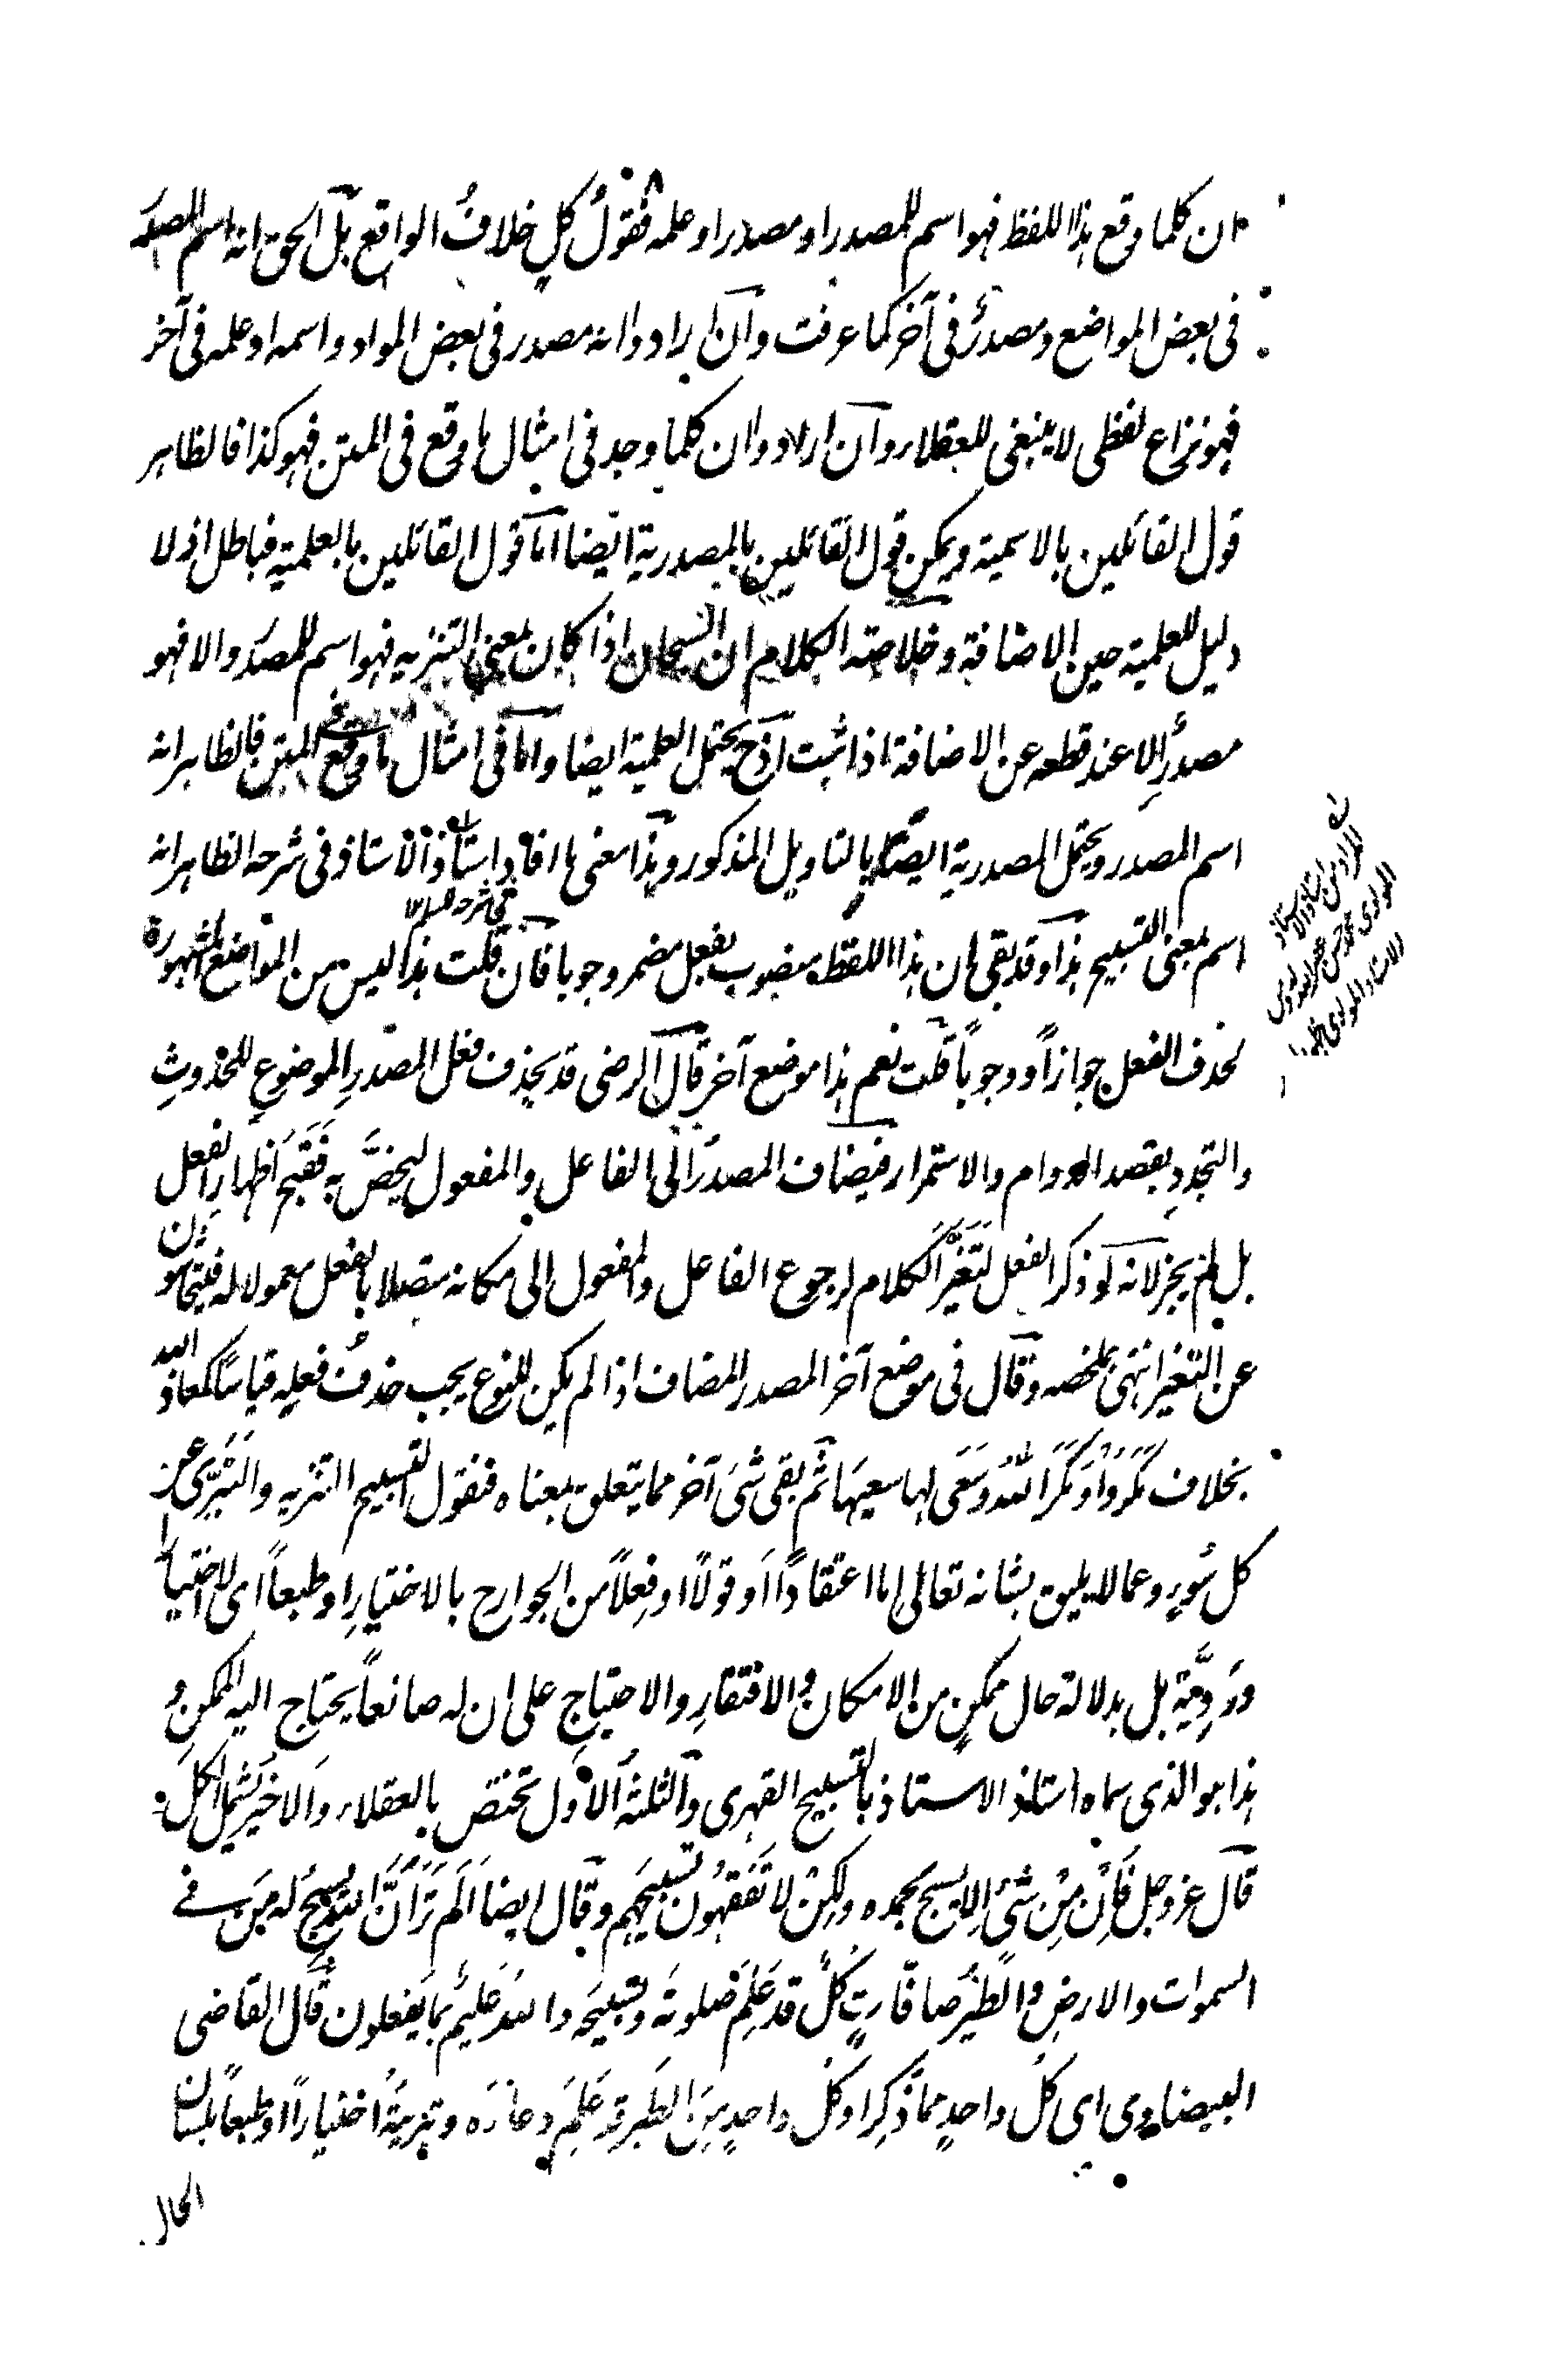 ان كلما وقع هذا اللفظ فهو اسم للمصدر او مصدر او علمه فقولُ كلٍ خلافُ الواقع بل الحق انه اسم المصدر
فى بعض المواضع ومصدرٌ فى آخر كما عرفت وان ارادوا انه مصدر فى بعض المواد واسمه او علمه فى آخر
فهو نزاع لفظى لا ينبغى للعقلاء وان ارادوا ان كلما وجد فى امثال ما وقع فى المتن فهو كذا فالظاهر
قول القائلين بالاسمية ويمكن قول القائلين بالمصدرية ايضا اما قول القائلين بالعلمية فباطل اذ لا
دليل للعلمية حين الاضافة وخلاصة الكلام ان السبحان اذا كان بمعنى التنزيه فهو اسم للمصدر والا فهو
مصدرٌ الا عند قطعه عن الاضافة اذا ثبت اذ ح يحتمل العلمية ايضا واما فى امثال ما وقع فى المتن فالظاهر انه
اسم المصدر ويحتمل المصدرية ايضًا بالتاويل المذكور وهذا معنى ما افاد استاذ الاستاذ فى شرحه الظاهر انه
فى شرحه للسلم ١٢
اسم بمعنى التسبيح هذا وقد بقى ان هذا اللفظ منصوب بفعل مضمر وجوبا فان قلت هذا ليس من المواضع المشهورة
لحذف الفعل جوازاً ووجوباً قلت نعم هذا موضع آخر قال الرضى قد يحذف فعل المصدرِ الموضوعِ للحدوثِ
والتجددِ بقصد الدوام والاستمرار فيضاف المصدر الى الفاعل والمفعول ليخصَّ به فَقَبُحَ اظهار الفعل
بل لم يجز لانه لو ذكر الفعل لَتَغَيَّرَ الكلام لرجوع الفاعل والمفعول الى مكانه متصلا بالفعل معمولا له فيتحاشون
عن التغير انتهى بملخصه وقال فى موضع آخر المصدر المضاف اذا لم يكن للنوع يجب حذفُ فعلِه قياسًا كمعاذ الله
بخلاف مَكَرُوْا وَمَكَرَ اللّٰهُ وَسَعَى لها سعيَهَا ثم بقى شئ آخر مما يتعلق بمعناه فنقول التسبيح التنزيه والتبرّى عن
كل سُوءٍ وعما لا يليق بشانه تعالى اما اعتقادًا او قولًا او فعلًا من الجوارح بالاختيارِ او طبعاً اى لا اختيارا
ورَوِيّة بل بدلالة حال ممكنٍ من الامكان والافتقارِ والاحتياجِ على ان له صانعاً يحتاج اليه الممكنُ و
هذا هو الذى سماه استاذ الاستاذ بالتسبيح القهرى والثلثةُ الاُوَل تختص بالعقلاء والاخيرُ يشمل الكلَ
قال عز وجل فَاِنْ مِنْ شئٍ اِلا يسبح بحمده ولكِنْ لا تَفقهُون تسبيحَهم وقال ايضا اَلَم تَرَ اَنَّ اللّٰه يسبِّح لَه مَن فى
السموات والارضِ والطيرُ صافّاتٍ كلٌ قد عَلِمَ صلوتَه وتسبيحَه واللّٰه عليمٌ بما يفعلون قال القاضى
البيضاوى اى كلُ واحدٍ مما ذُكِرَ او كلُ واحدٍ من الطير قد عَلِمَ دعاءَه وتنزيهَه اختياراً او طبعاً بلسان
الحال